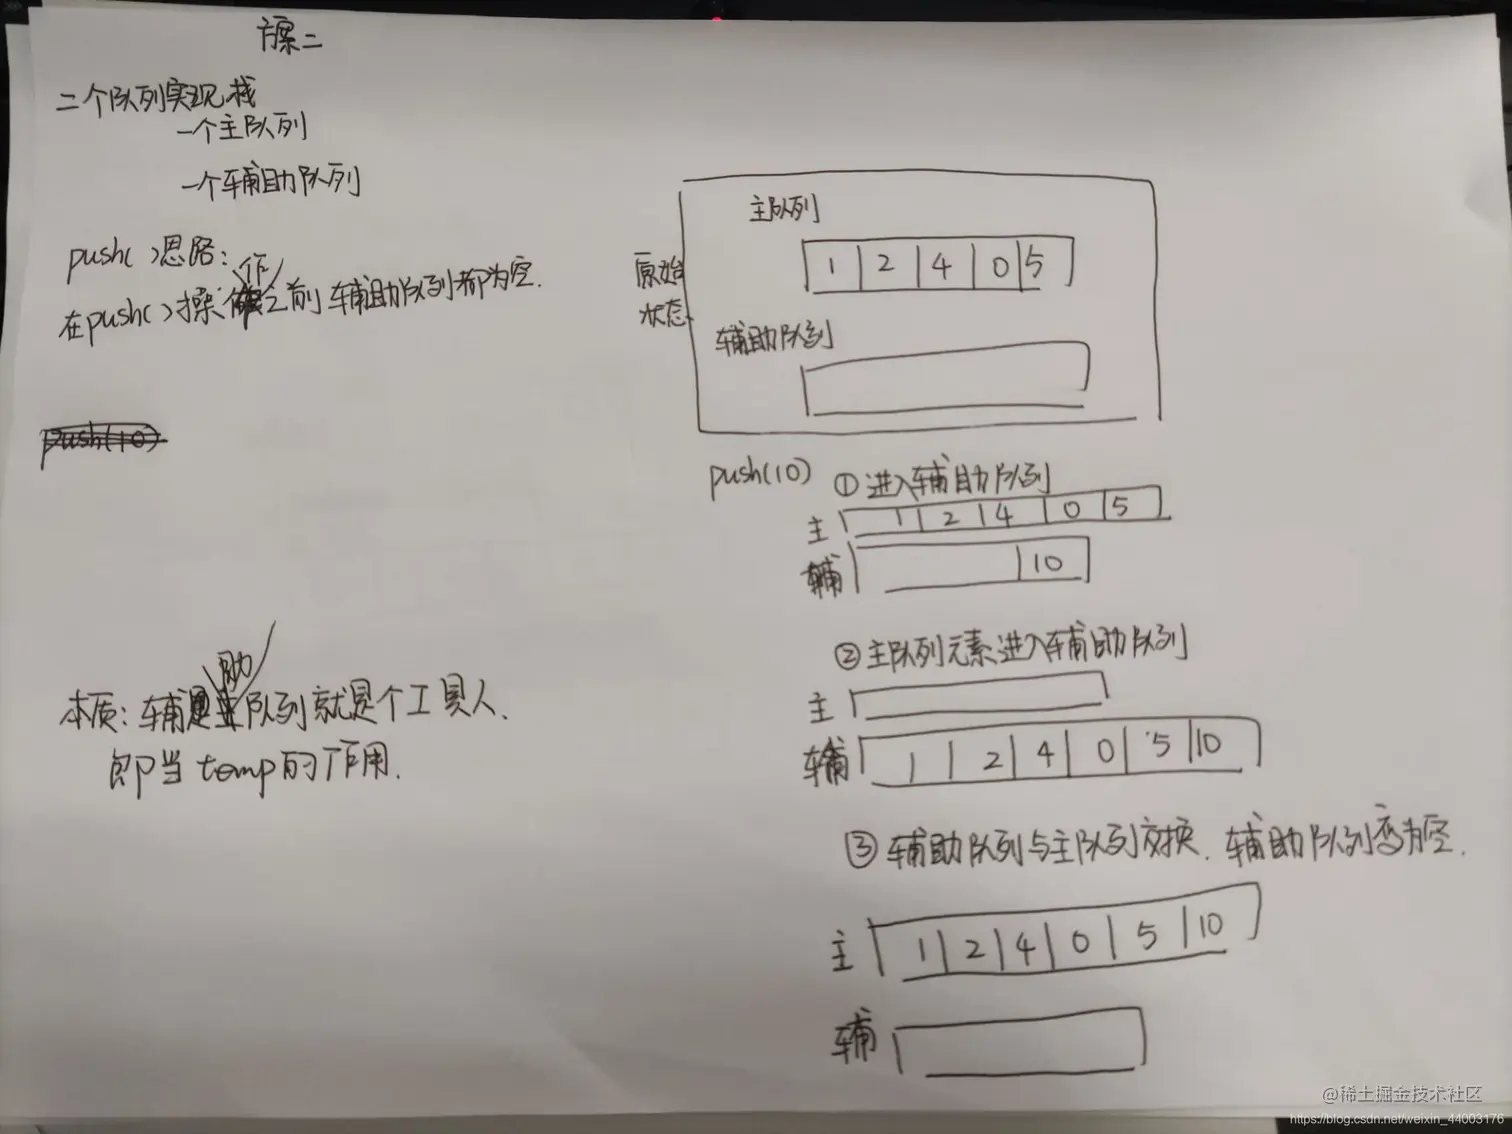 方案二
二个队列实现栈
一个主队列
一个辅助队列
push()思路:
作
在push()操之前 辅助队列都为空.
push(10)
助
本质: 辅队列就是个工具人.
即当temp的作用.
原始
状态
主队列
1 2 4 0 5
辅助队列
push(10) ①进入辅助队列
主 1 2 4 0 5
辅 10
②主队列元素进入辅助队列
主
辅 1 2 4 0 5 10
③辅助队列与主队列交换. 辅助队列变为空.
主 1 2 4 0 5 10
辅
@稀土掘金技术社区
https://blog.csdn.net/weixin_44003176